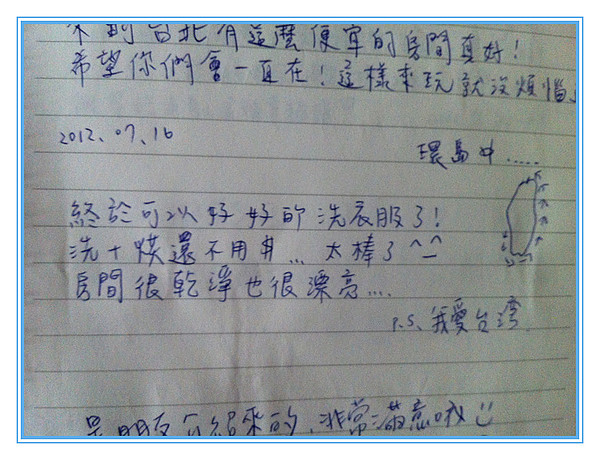 來到台北有這麼便宜的房間真好!
希望你們會一直在!這樣來玩就沒煩惱
2012.07.16
環島中.....
終於可以好好的洗衣服了!
洗+烘還不用$... 太棒了^_^
房間很乾淨也很漂亮....
P.S. 我愛台灣
是朋友介紹來的,非常滿意哦